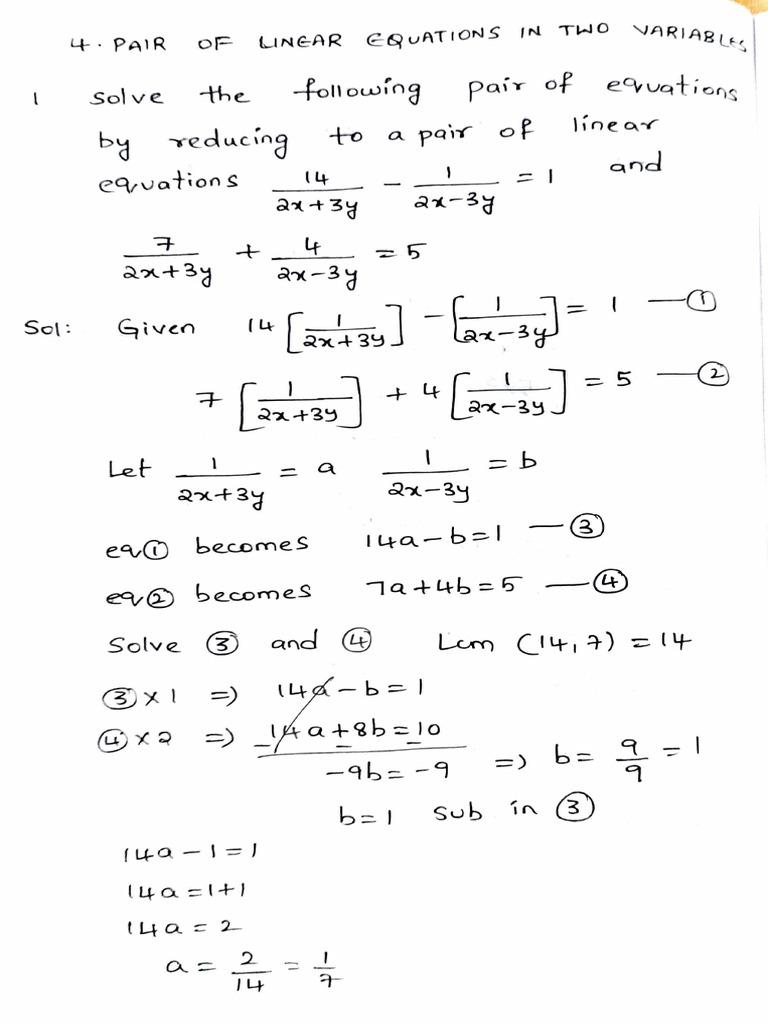 4. PAIR OF LINEAR EQUATIONS IN TWO VARIABLES
1 Solve the following pair of equations
by reducing to a pair of linear
equations 14/(2x+3y) - 1/(2x-3y) = 1 and
7/(2x+3y) + 4/(2x-3y) = 5
Sol: Given 14[1/(2x+3y)] - [1/(2x-3y)] = 1 —①
7[1/(2x+3y)] + 4[1/(2x-3y)] = 5 —②
Let 1/(2x+3y) = a 1/(2x-3y) = b
eq① becomes 14a-b=1 —③
eq② becomes 7a+4b=5 —④
Solve ③ and ④ Lcm (14,7) = 14
③×1 => 14a-b=1
④×2 => 14a+8b=10
- - -
-9b=-9 => b= 9/9 = 1
b=1 sub in ③
14a-1=1
14a=1+1
14a=2
a= 2/14 = 1/7